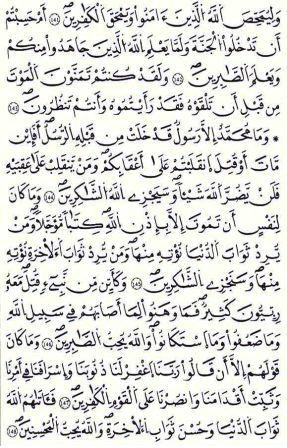 وَلِيُمَحِّصَ اَللَّهُ اُلَّذِينَ ءَامَنُواْ وَيَمْحَقَ اَلْكَٰفِرِينَ ١٤١ أَمْ حَسِبْتُمُ
أَن تَدْخُلُواْ اُلْجَنَّةَ وَلَمَّا يَعْلَمِ اِللَّهُ اُلَّذِينَ جَٰهَدُواْ مِنكُمْ
وَيَعْلَمَ اَلصَّٰبِرِينَ ١٤٢ وَلَقَدْ كُنتُمْ تَمَنَّوْنَ اَلْمَوْتَ
مِن قَبْلِ أَن تَلْقَوْهُ فَقَدْ رَأَيْتُمُوهُ وَأَنتُمْ تَنظُرُونَ ١٤٣
* وَمَا مُحَمَّدٌ اِلَّا رَسُولٌ قَدْ خَلَتْ مِن قَبْلِهِ اِلرُّسُلُ أَفَإِيْن
مَّاتَ أَوْ قُتِلَ اَنقَلَبْتُمْ عَلَىٰ أَعْقَٰبِكُمْ وَمَنْ يَّنقَلِبْ عَلَىٰ عَقِبَيْهِ
فَلَنْ يَّضُرَّ اَللَّهَ شَيْـٔاً وَسَيَجْزِے اِللَّهُ اُلشَّٰكِرِينَ ١٤٤ وَمَا كَانَ
لِنَفْسٍ أَن تَمُوتَ إِلَّا بِإِذْنِ اِللَّهِ كِتَٰباً مُّؤَجَّلاً وَمَنْ
يُّرِدْ ثَوَابَ اَلدُّنْيَا نُؤْتِهِ مِنْهَا وَمَنْ يُّرِدْ ثَوَابَ اَلْأَخِرَةِ نُؤْتِهِ
مِنْهَا وَسَنَجْزِے اِلشَّٰكِرِينَ ١٤٥ وَكَأَيِّن مِّن نَّبِےٓءٍ قُتِلَ مَعَهُ
رِبِّيُّونَ كَثِيرٌ فَمَا وَهَنُواْ لِمَا أَصَابَهُمْ فِے سَبِيلِ اِللَّهِ
وَمَا ضَعُفُواْ وَمَا اَسْتَكَانُواْ وَاللَّهُ يُحِبُّ اُلصَّٰبِرِينَ ١٤٦ وَمَا كَانَ
قَوْلَهُمْ إِلَّا أَن قَالُواْ رَبَّنَا اَغْفِرْ لَنَا ذُنُوبَنَا وَإِسْرَافَنَا فِے أَمْرِنَا
وَثَبِّتَ اَقْدَامَنَا وَانصُرْنَا عَلَى اَلْقَوْمِ اِلْكَٰفِرِينَ ١٤٧ فَـَٔاتَىٰهُمُ اُللَّهُ
ثَوَابَ اَلدُّنْيَا وَحُسْنَ ثَوَابِ اِلْأَخِرَةِ وَاللَّهُ يُحِبُّ اُلْمُحْسِنِينَ ١٤٨